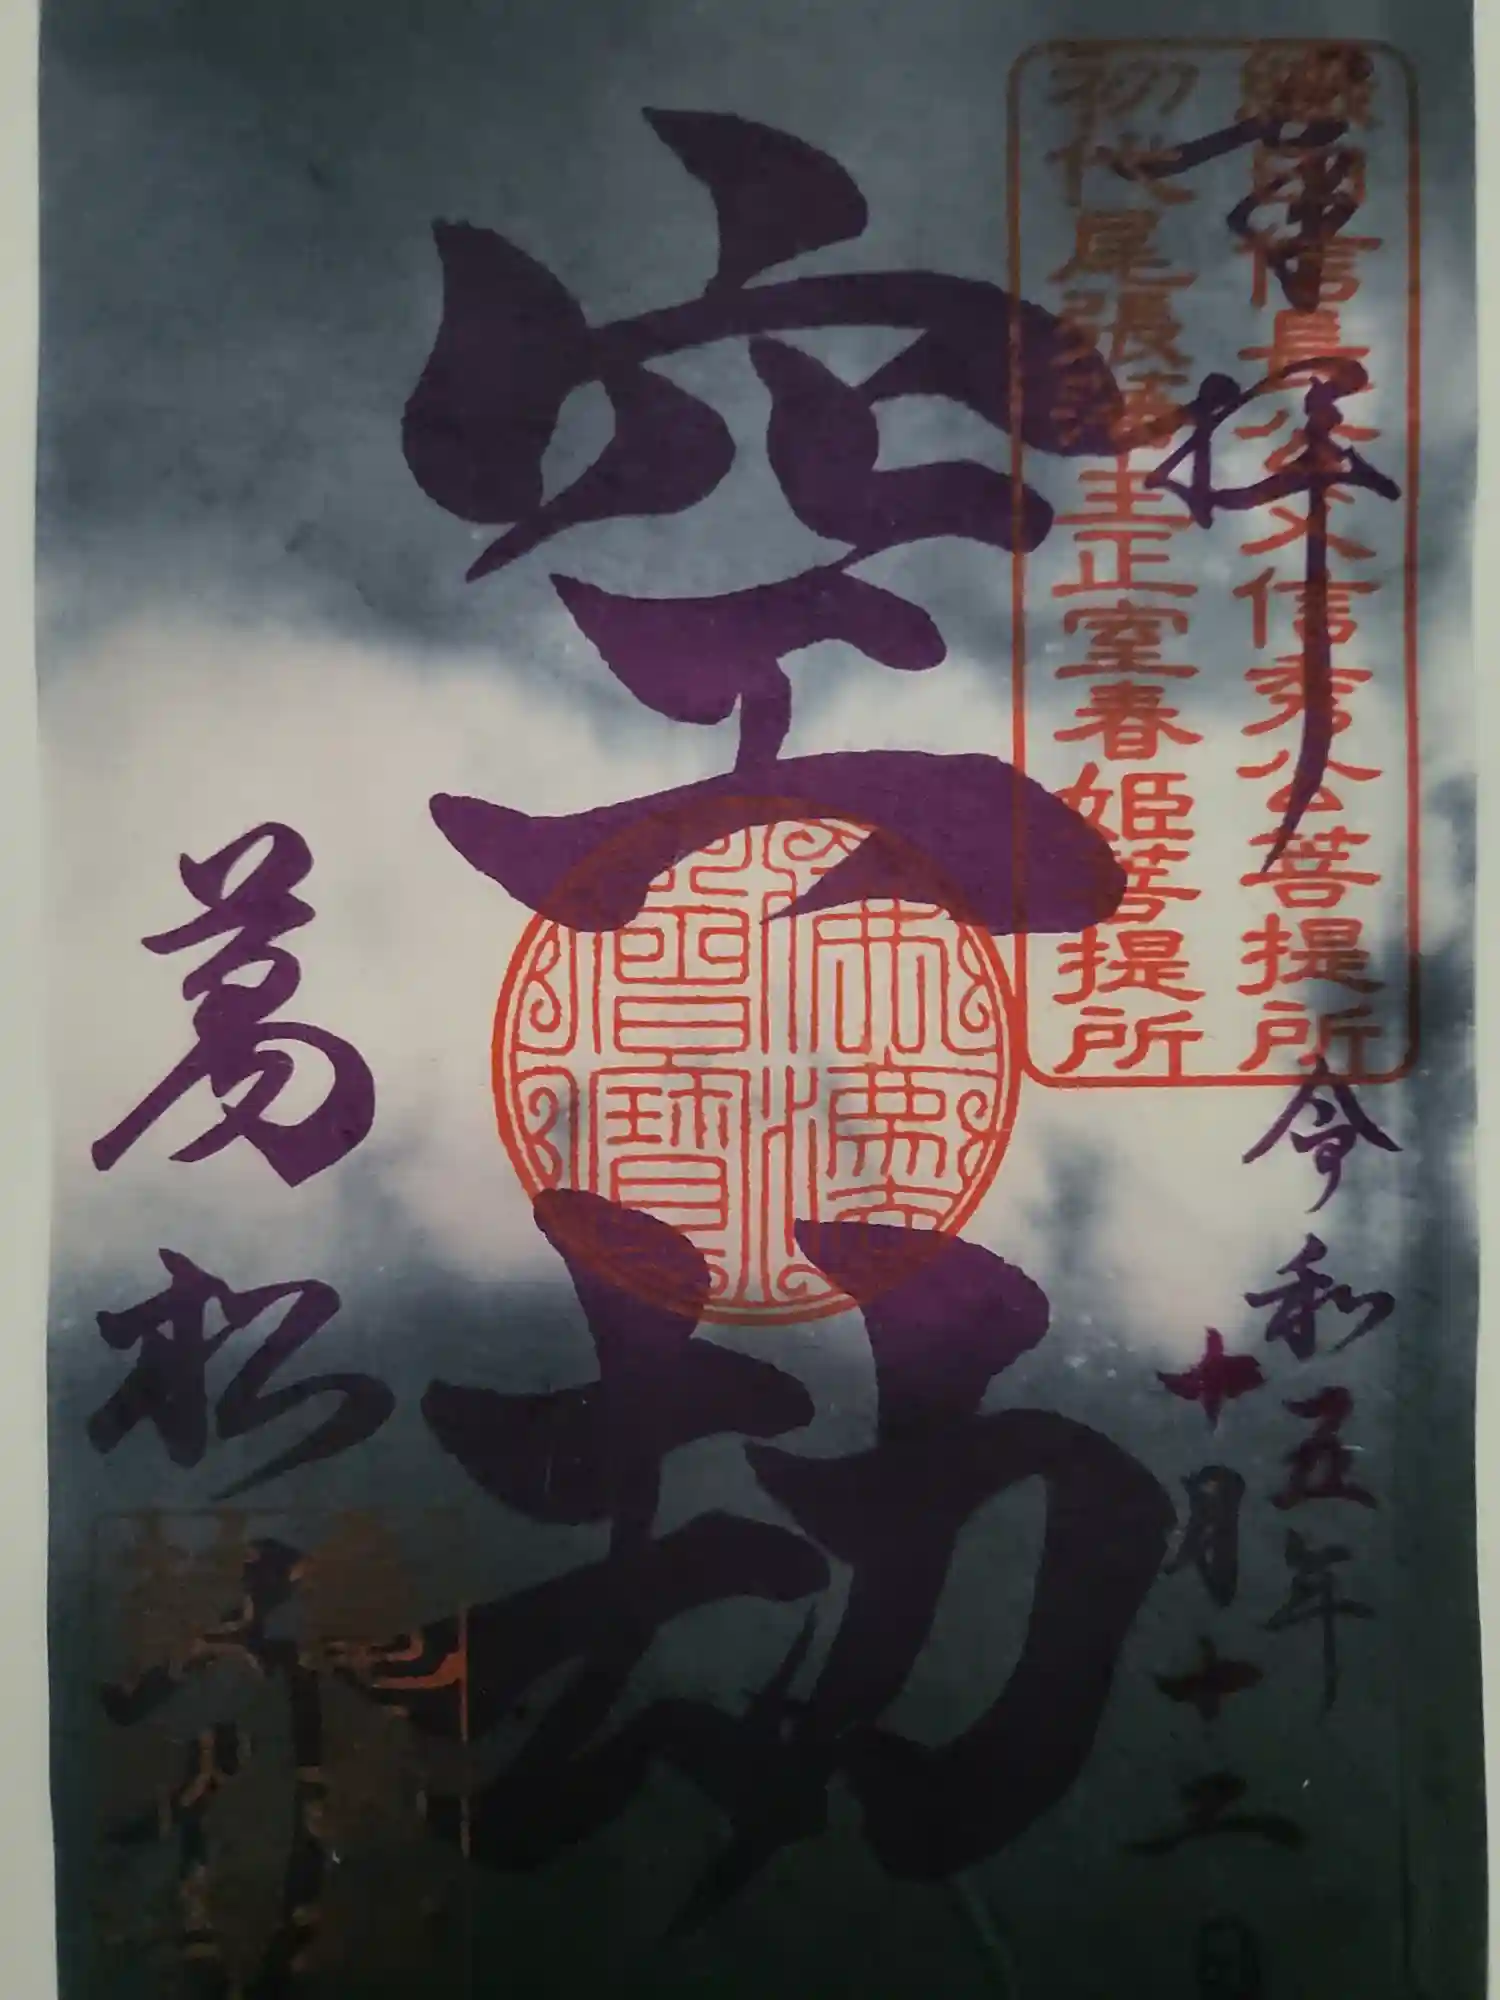 奉拝
織田信長公父信秀公菩提所
初代尾張藩主正室春姫菩提所
令和五年
十月十二日
空劫
萬松